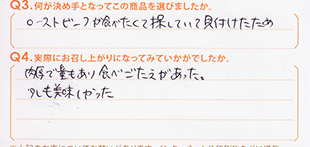 Q3.何が決め手となってこの商品を選びましたか。
ローストビーフが食べたくて探していて見付けたため
Q4.実際にお召し上がりになってみていかがでしたか。
肉厚で量もあり食べごたえがあった。
味も美味しかった